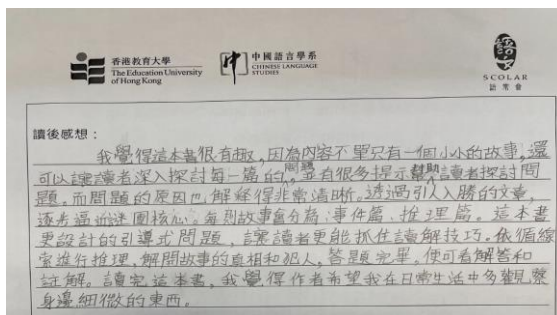 香港教育大學
The Education University
of Hong Kong
中國語言學系
CHINESE LANGUAGE
STUDIES
SCOLAR
語常會
讀後感想：
我覺得這本書很有趣，因為內容不單只有一個小小的故事，還
可以讓讀者深入探討每一篇的問題，並有很多提示幫助讀者探討問
題。而問題的原因也解釋得非常清晰。透過引人入勝的文章，
逐步逼近謎團核心。每則故事會分為：事件篇、推理篇。這本書
更設計的引導式問題，讓讀者更能抓住讀解技巧。依循線
索進行推理，解開故事的真相和犯人，答題完畢，便可看解答和
註解。讀完這本書，我覺得作者希望我在日常生活中多觀察
身邊細微的東西。